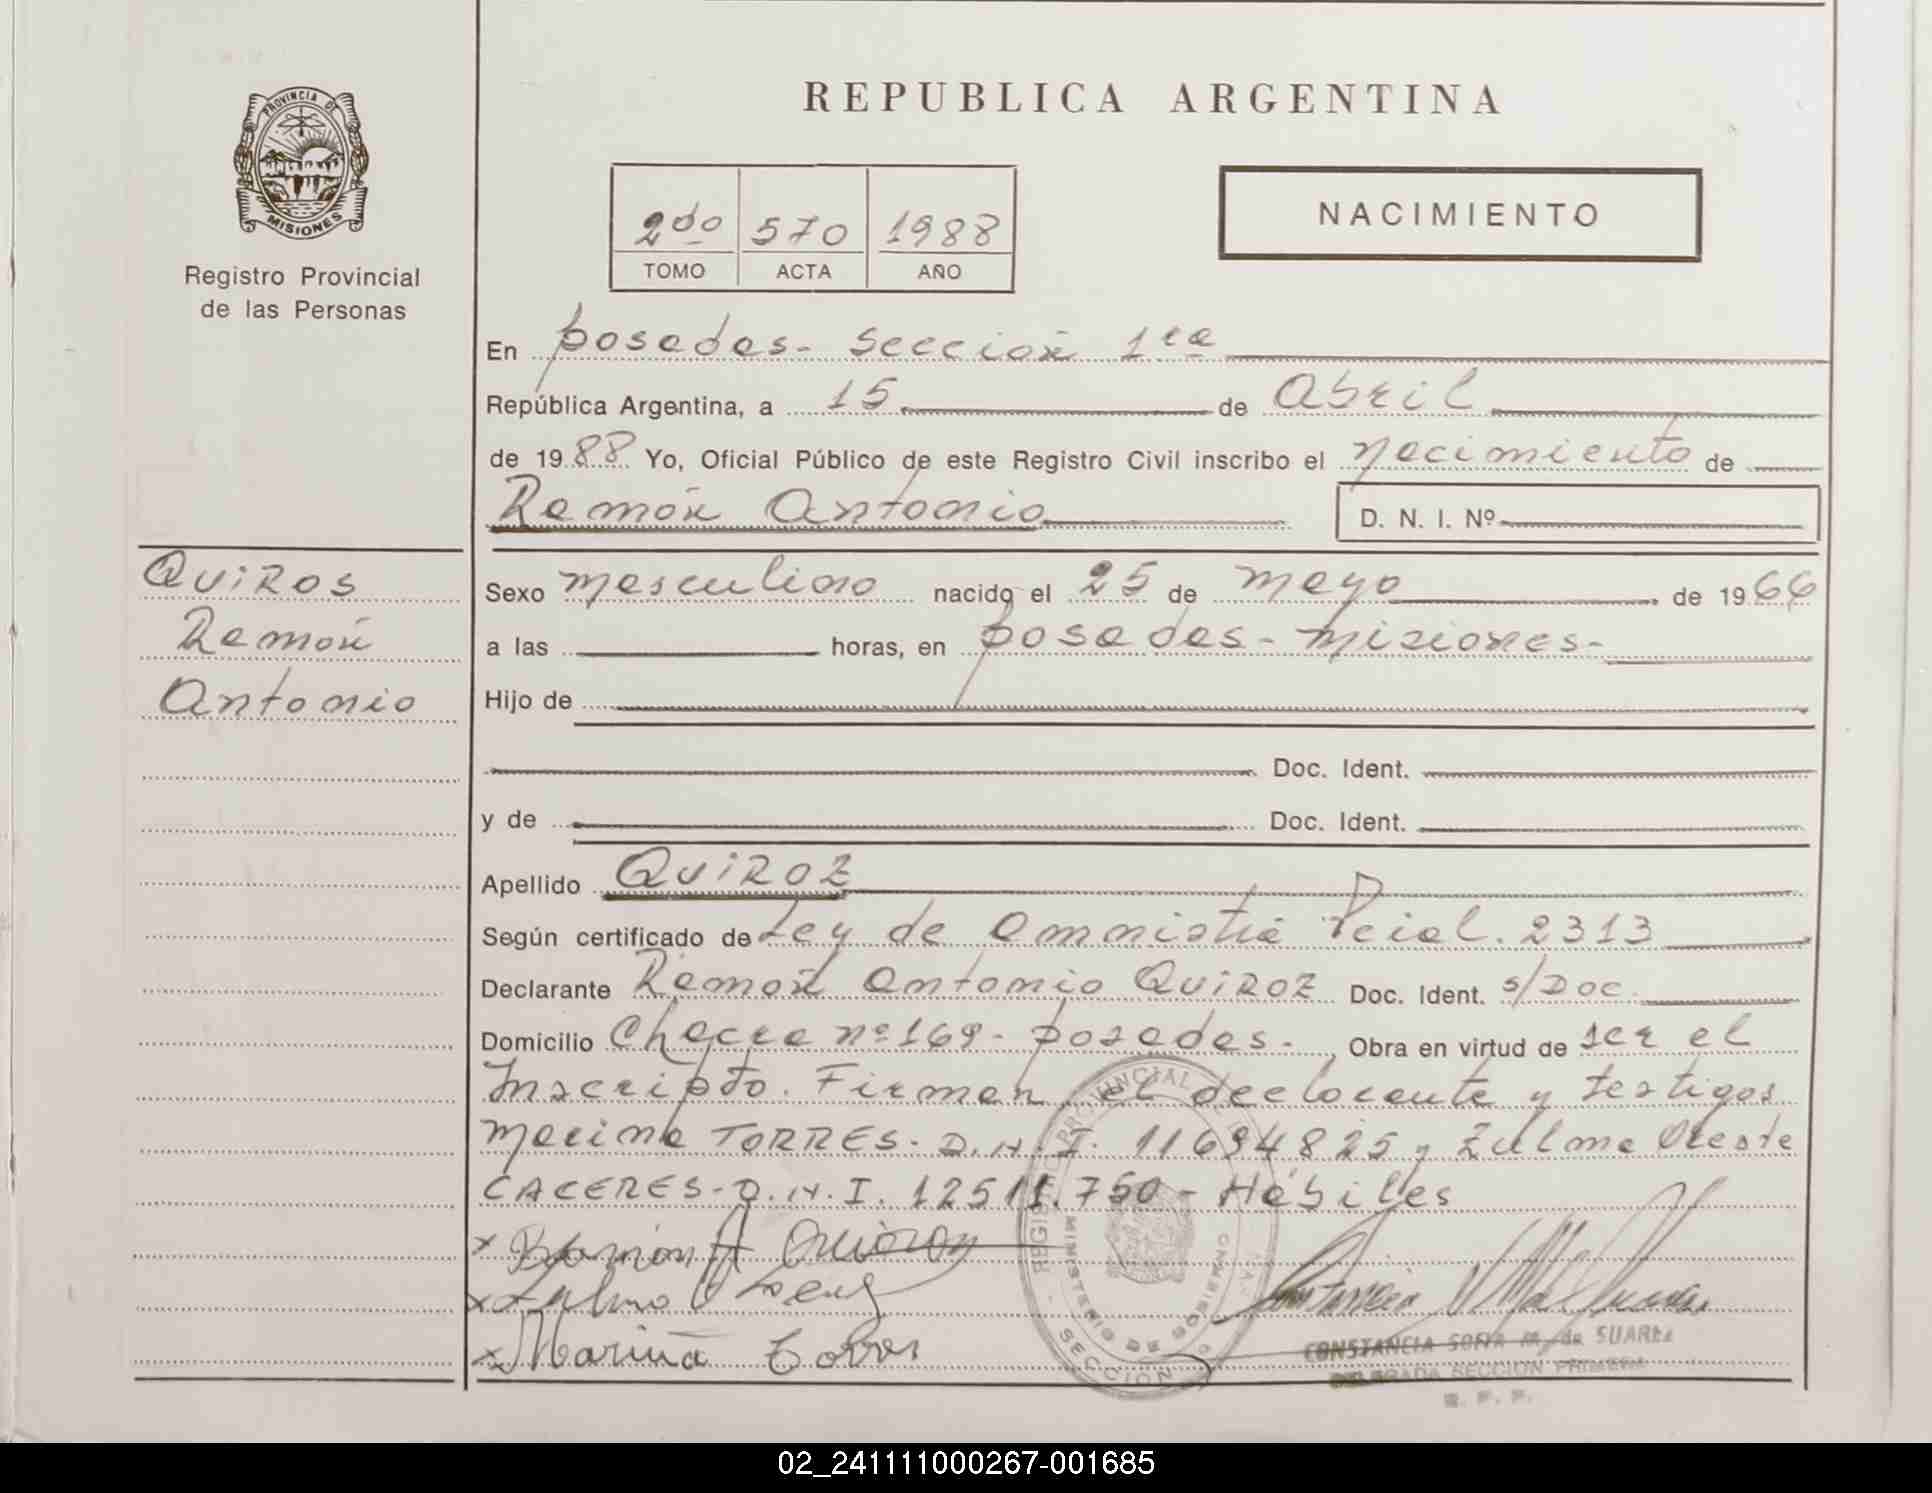 REPUBLICA ARGENTINA
PROVINCIA DE
MISIONES
Registro Provincial
de las Personas
2do 570 1988
TOMO ACTA AÑO
NACIMIENTO
En Posadas - Sección 1ra
República Argentina, a 15 de Abril
de 1988 Yo, Oficial Público de este Registro Civil inscribo el Nacimiento de
Ramón Antonio
D. N. I. Nº
QUIROS
Ramón
Antonio
Sexo masculino nacido el 25 de mayo de 1966
a las horas, en Posadas - Misiones -
Hijo de
Doc. Ident.
y de Doc. Ident.
Apellido QUIROZ
Según certificado de Ley de Amnistía Pcial. 2313
Declarante Ramón Antonio QUIROZ Doc. Ident. s/Doc.
Domicilio Chacra nº 169 - Posadas - Obra en virtud de ser el
Inscripto. Firman el declarante y testigos
Marina TORRES - D.N.I. 11694825 y Zulma
CACERES - D.N.I. 12511.750 - Hábiles
x Ramón A
x Zulma
x Marina Torres
REGISTRO PROVINCIAL
MINISTERIO DE GOBIERNO
SECCION
CONSTANCIA SOFIA M. de SUAREZ
DELEGADA SECCION PRIMERA
R. P. P.
02_241111000267-001685